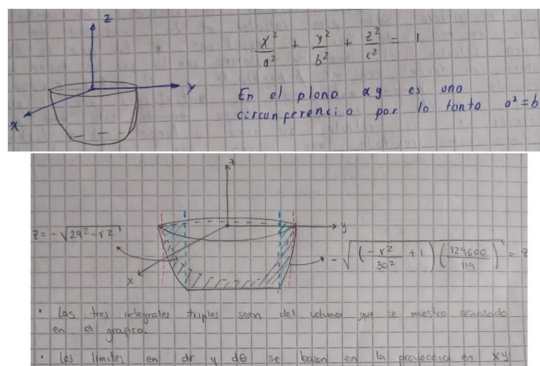 z
y
x
x²/a² + y²/b² + z²/c² = 1
En el plano xy es una
circunferencia por lo tanto a² = b
z
y
x
z = -√(29² - r²)
-√((-r²/30² + 1)(129600/119)) = z
• Las tres integrales triples seran del volumen que se muestra señalado
en el grafico.
• Los limites en dr y dθ se basan en la proyeccion en xy